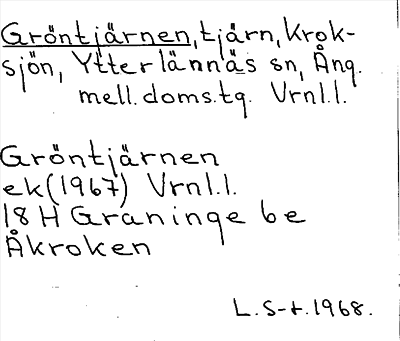 Gröntjärnen, tjärn, Krok-
sjön, Ytterlännäs sn, Ång.
mell. doms.tg. Vrnl.l.
Gröntjärnen
ek (1967) Vrnl.l.
18 H Graninge 6 e
Åkroken
L. S-t. 1968.